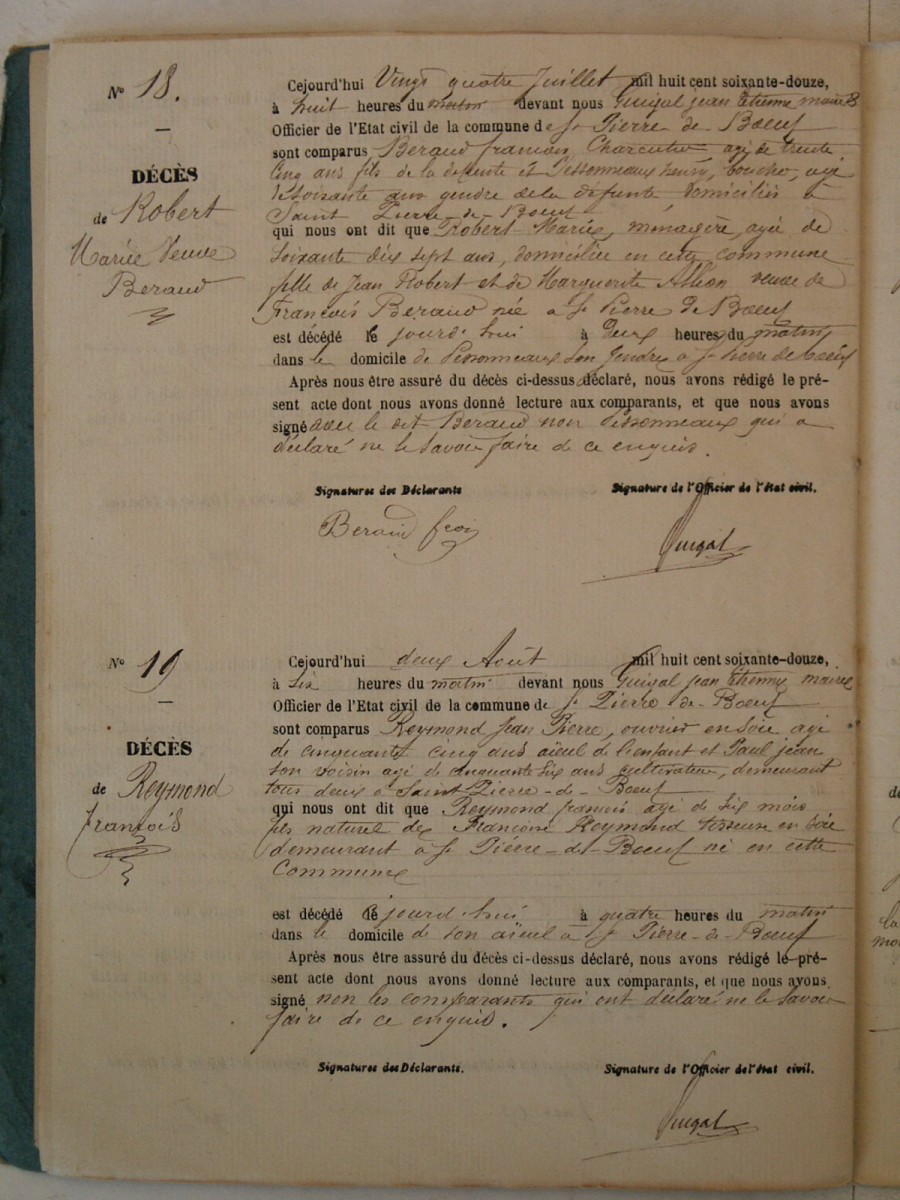 N° 18.
—
DÉCÈS
de Robert
Mariée Veuve
Beraud
Cejourd'hui Vingt quatre Juillet mil huit cent soixante-douze,
à huit heures du matin devant nous Guigal jean Etienne maire
Officier de l'Etat civil de la commune de St Pierre-de-Bœuf
sont comparus Beraud francois, Charcutier agé de trente
Cinq ans fils de la defunte et Pessonneaux henri, boucher, agé
de soixante ans gendre de la defunte domiciliés à
Saint Pierre-de-Bœuf
qui nous ont dit que Robert Mariée, ménagère, agée de
soixante dix sept ans, domiciliée en cette commune
fille de Jean Robert et de Marguerite Allion veuve de
François Beraud née à St Pierre de Bœuf
est décédé le jourd'hui à deux heures du matin
dans le domicile de Pessonneaux son gendre à St Pierre de bœuf
Après nous être assuré du décès ci-dessus déclaré, nous avons rédigé le pré-
sent acte dont nous avons donné lecture aux comparants, et que nous avons
signé avec le dit Beraud non Pessonneaux qui a
déclaré ne le savoir faire de ce enquis.
Signatures des Déclarants
Signature de l'Officier de l'état civil.
Beraud fcois
Guigal
N° 19
—
DÉCÈS
de Reymond
francois
Cejourd'hui deux Août mil huit cent soixante-douze,
à six heures du matin devant nous Guigal jean Etienne maire
Officier de l'Etat civil de la commune de St Pierre-de-Bœuf
sont comparus Reymond Jean Pierre, ouvrier en soie agé
de cinquante cinq ans aïeul de l'enfant et Paul jean
son voisin agé de cinquante six ans cultivateur, demeurant
tous deux à Saint Pierre-de-Bœuf
qui nous ont dit que Reymond francois agé de six mois
fils naturel de Francoise Reymond tisseuse en soie
demeurant à St Pierre-de-Bœuf né en cette
Commune
est décédé le jourd'hui à quatre heures du matin
dans le domicile de son aïeul à St Pierre-de-Bœuf
Après nous être assuré du décès ci-dessus déclaré, nous avons rédigé le pré-
sent acte dont nous avons donné lecture aux comparants, et que nous avons
signé non les comparants qui ont déclaré ne le savoir
faire de ce enquis.
Signatures des Déclarants.
Signature de l'Officier de l'état civil.
Guigal